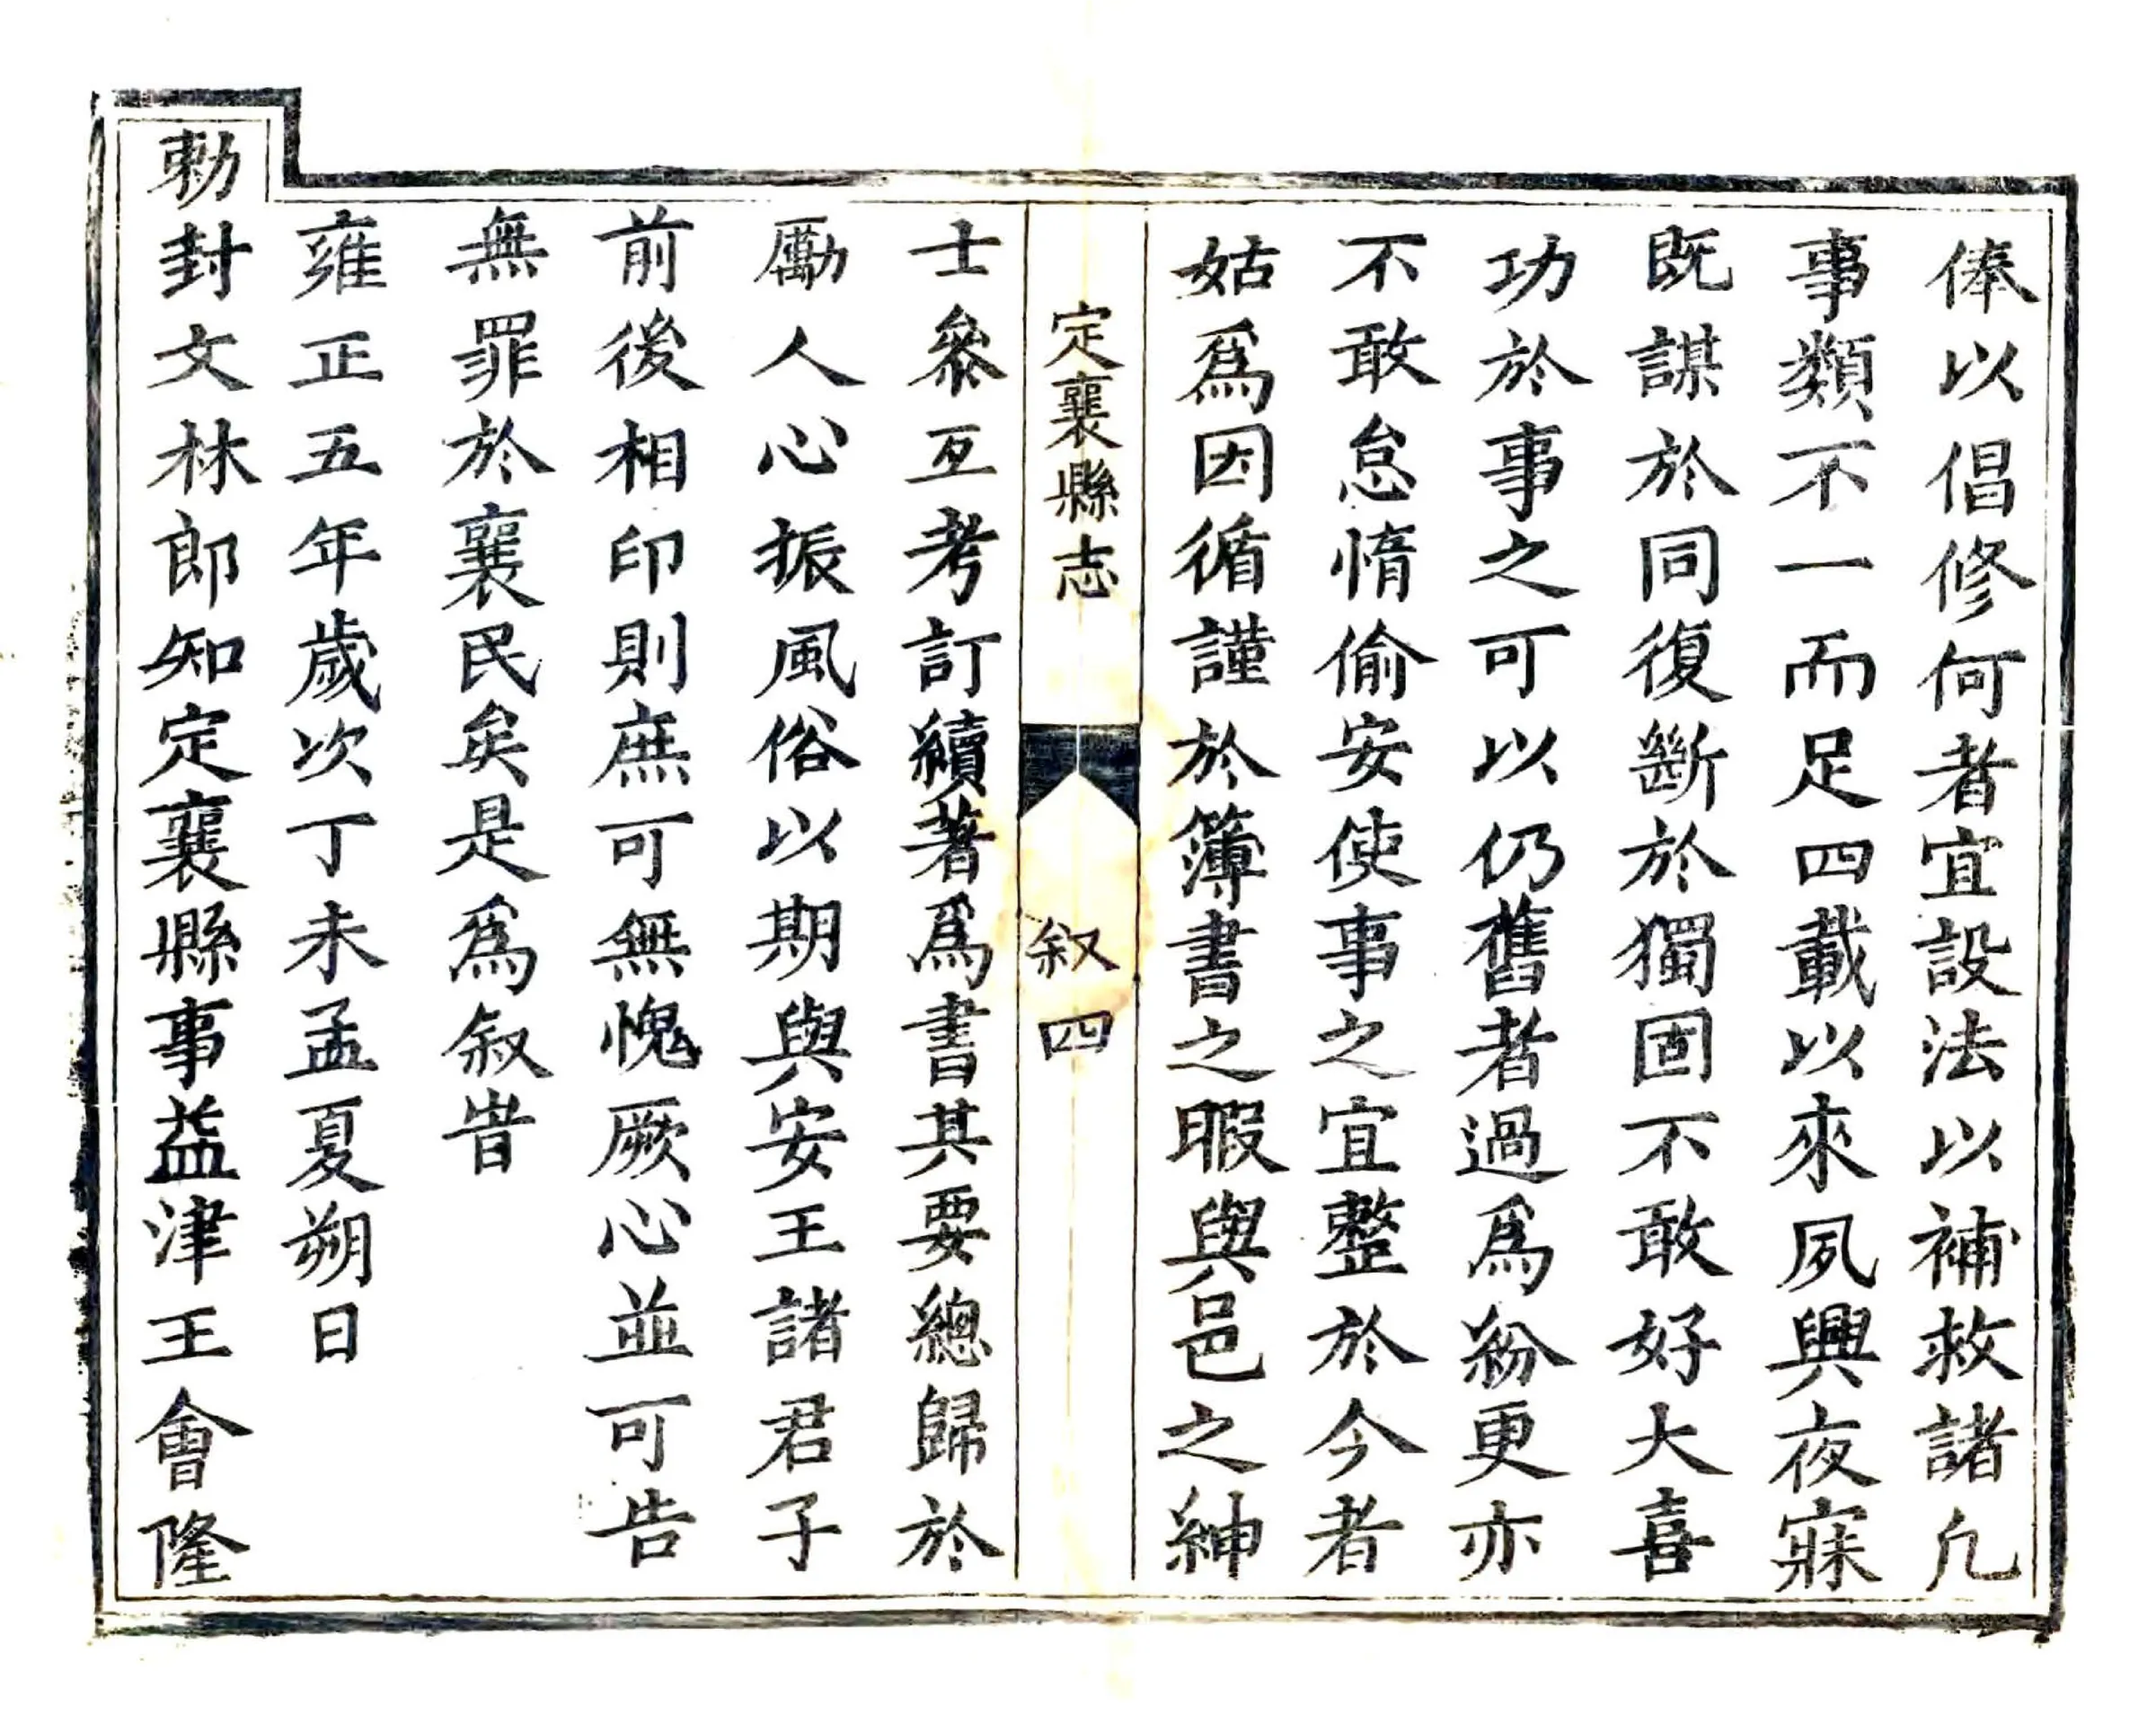 俸以倡修何者宜設法以補救諸凢
事類不一而足四載以來夙興夜寐
既謀於同復斷於獨固不敢好大喜
功於事之可以仍舊者過爲紛更亦
不敢怠惰偷安使事之宜整於今者
姑爲因循謹於簿書之暇與邑之紳
定襄縣志
叙
四
士叅互考訂續著爲書其要總歸於
勵人心振風俗以期與安王諸君子
前後相印則庶可無愧厥心並可告
無罪於襄民矣是爲叙旹
雍正五年歲次丁未孟夏朔日
勅封文林郎知定襄縣事益津王會隆